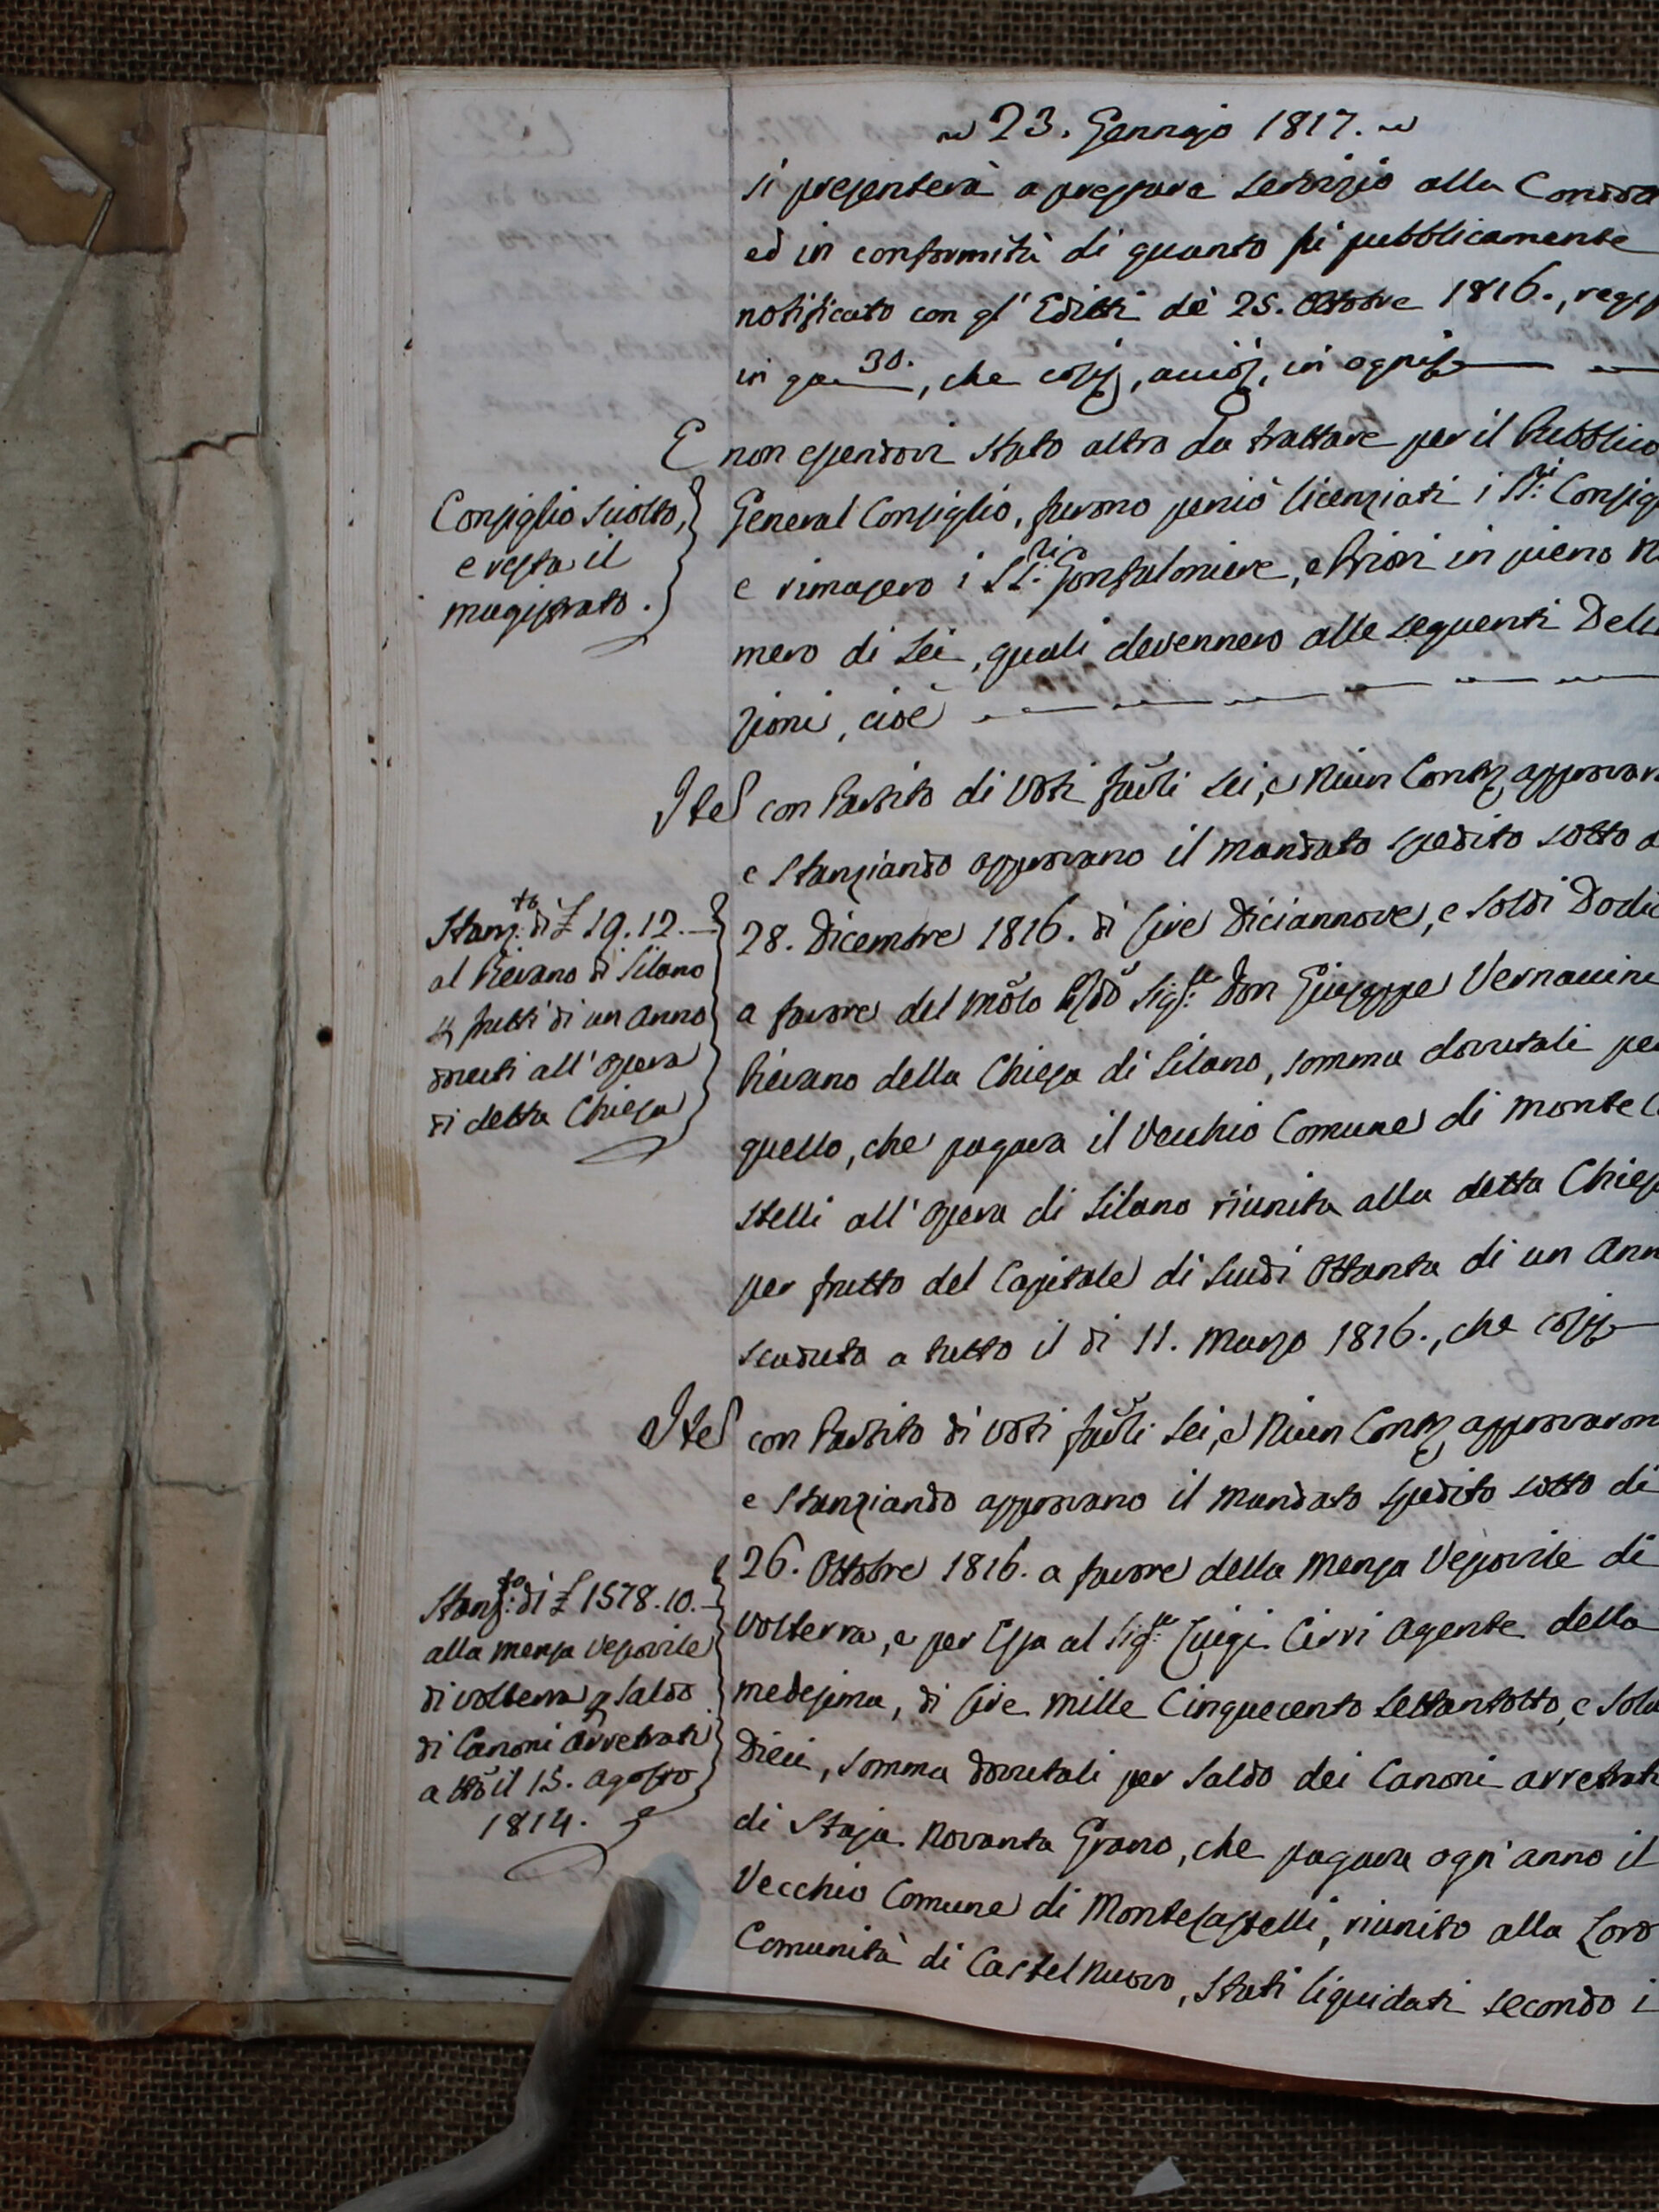 23. Gennajo 1817.
si presenterà a prestare servizio alla Condotta
ed in conformità di quanto fù pubblicamente
notificato con gl' Editti de 25. Ottobre 1816., reg
in 30., che così, in ogni
E non essendovi stato altro da trattare per il Pubblico
General Consiglio, furono perciò licenziati i SS.ri Consig
e rimasero i SS.ri Gonfaloniere, e Priori in pieno Nu
mero di Sei, quali devennero alle seguenti Deli
zioni, cioè
Consiglio sciolto,
e resta il
magistrato.
Ite con Partito di Voti favli Sei, e Niun Cont approvar
e Stanziando approvano il mandato spedito sotto
28. Dicembre 1816. di Lire Diciannove, e Soldi Dodic
a favore del Molo Rdo Sigre Don Giuseppe Vernaccini
Pievano della Chiesa di Silano, somma dovutali per
quello, che pagava il Vecchio Comune di Monte C
stelli all' Opera di Silano riunita alla detta Chies
per frutto del Capitale di Scudi Ottanta di un Ann
scaduto a tutto il dì 11. Marzo 1816., che così
Stanz.to di £ 19.12.-
al Pievano di Silano
frutti di un Anno
dovuti all' Opera
di detta Chiesa
Ite con Partito di Voti favli Sei, e Niun Cont approvaron
e Stanziando approvano il Mandato spedito sotto di
26. Ottobre 1816. a favore della Mensa Vescovile di
Volterra, e per Essa al Sigre Luigi Cirri Agente della
medesima, di Lire Mille Cinquecento Settantotto, e Sol
Dieci, somma dovutali per Saldo dei Canoni arretrati
di Staja Novanta Grano, che pagava ogn' anno il
Vecchio Comune di Montecastelli, riunito alla Loro
Comunità di Castelnuovo, Stati liquidati secondo i
Stanz.to di £ 1578.10.-
alla Mensa Vescovile
di Volterra p Saldo
di Canoni Arretrati
a tto il 15. Agosto
1814.